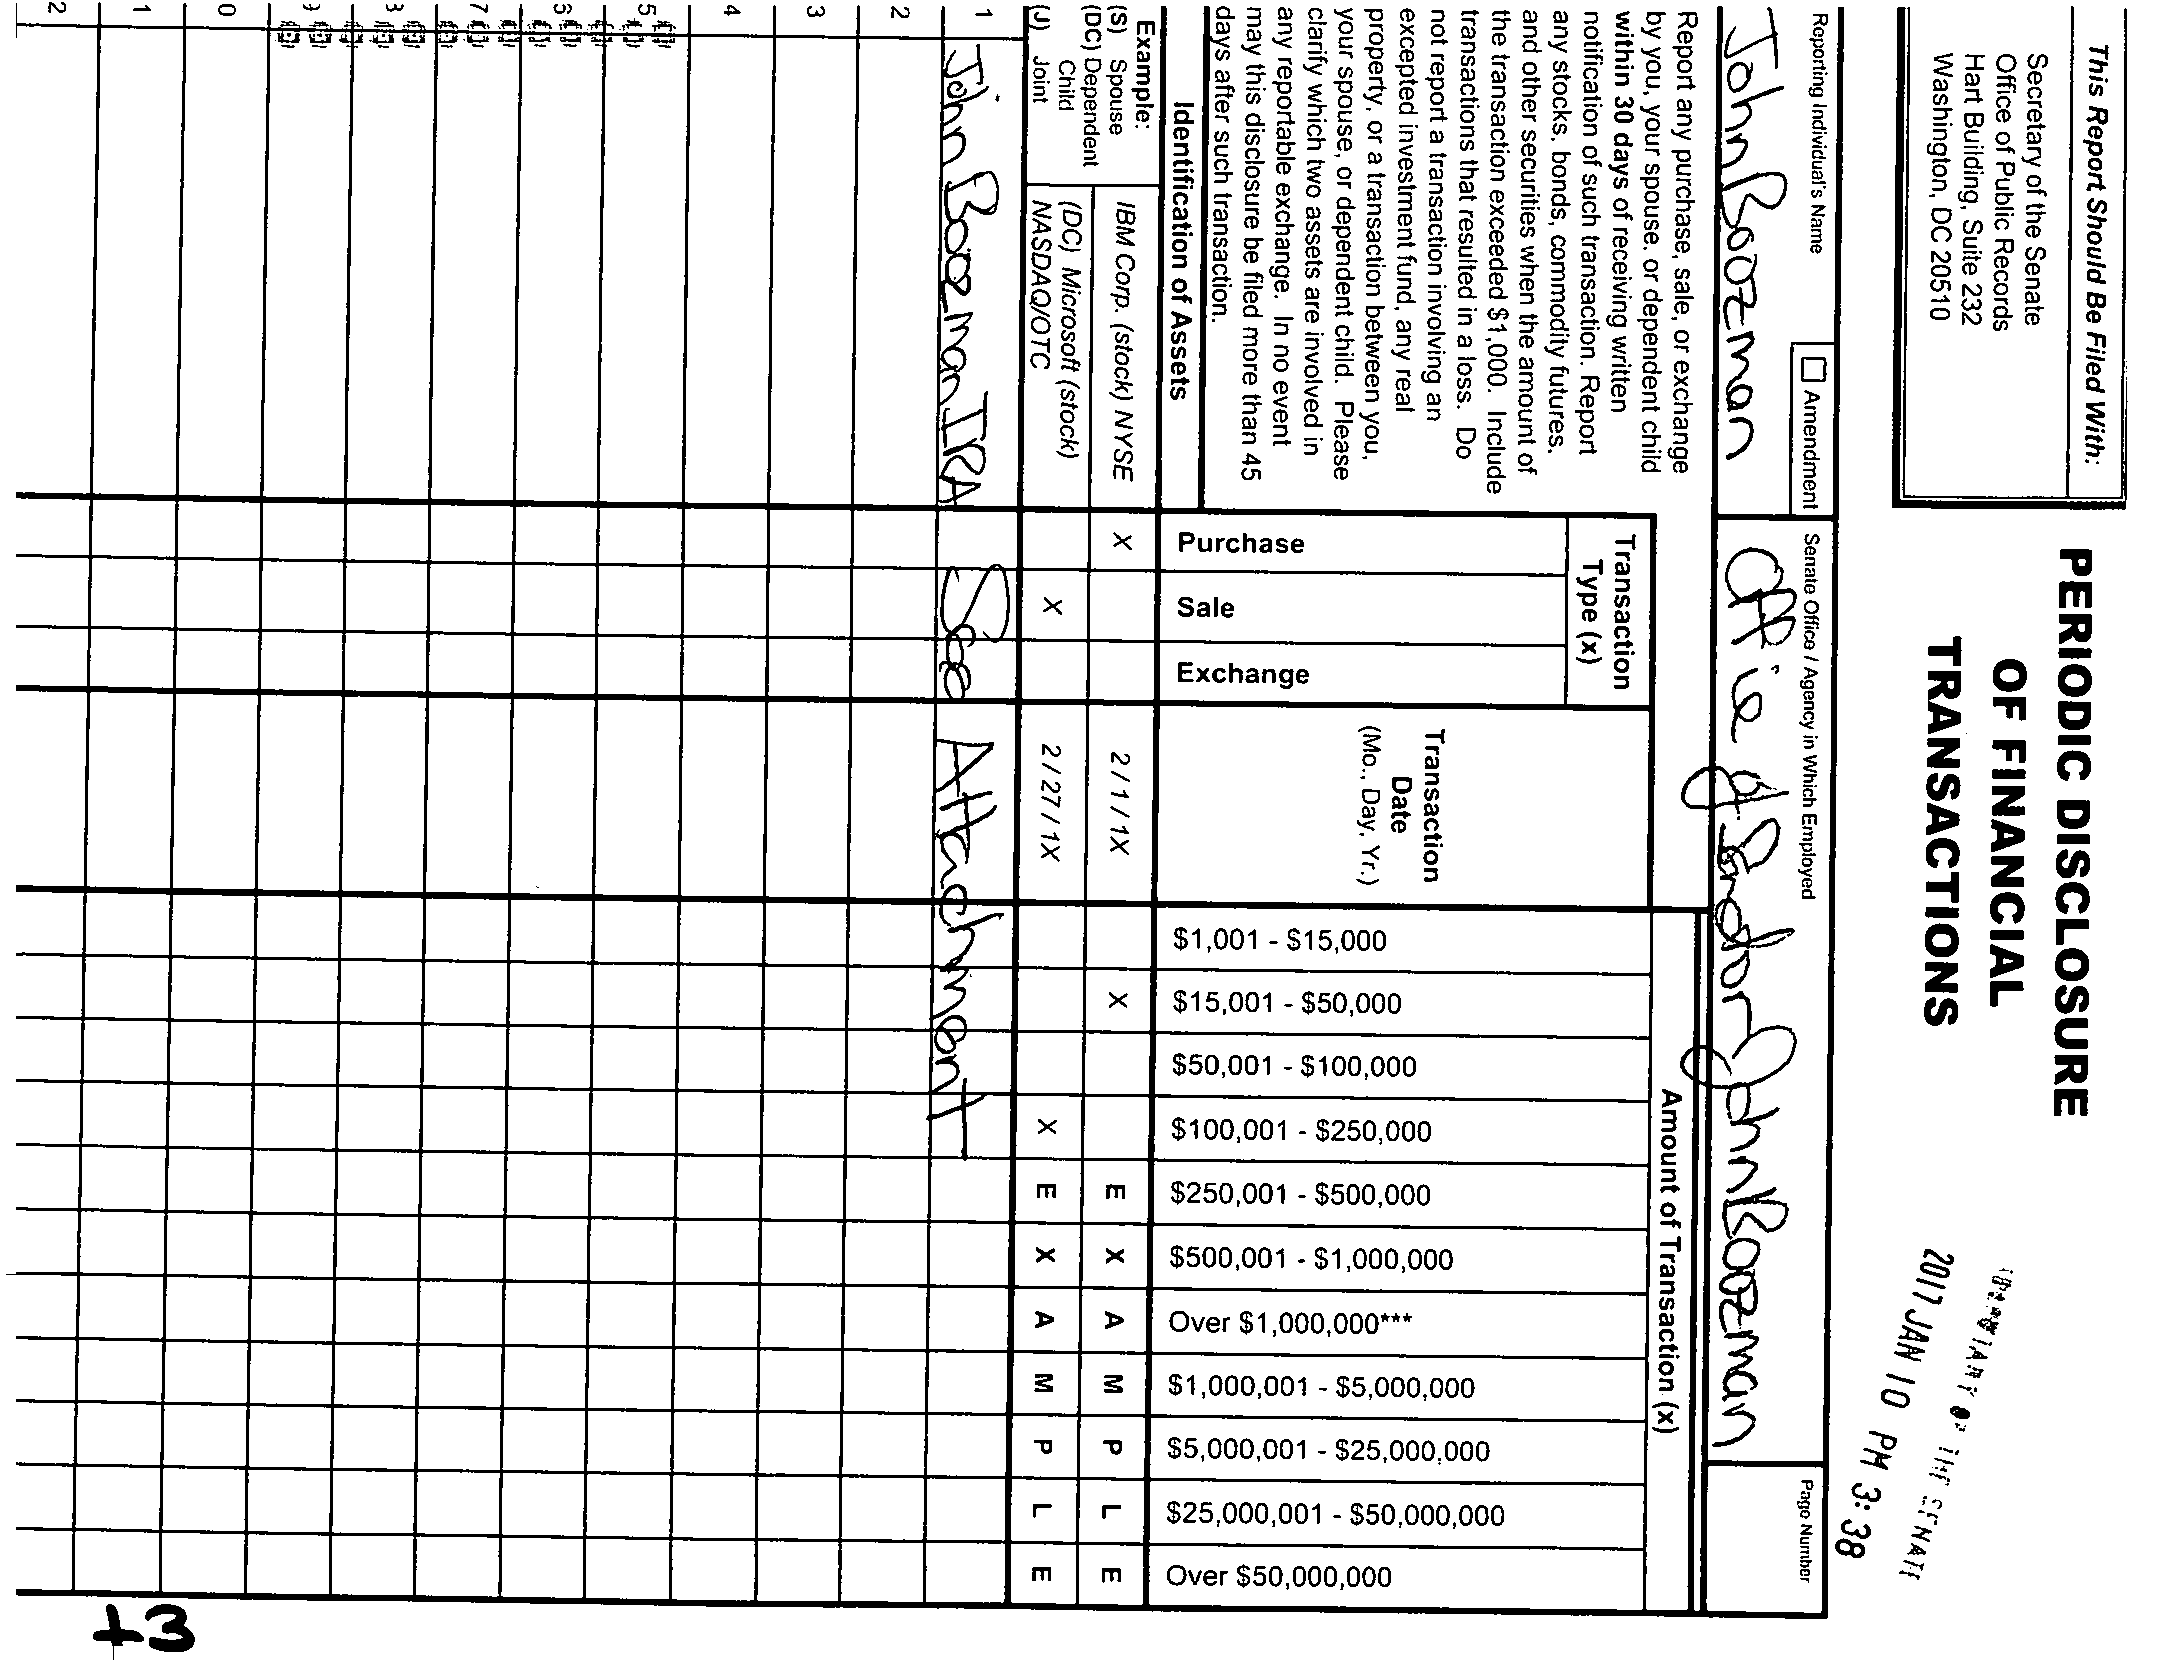 This Report Should Be Filed With:
Secretary of the Senate
Office of Public Records
Hart Building, Suite 232
Washington, DC 20510
PERIODIC DISCLOSURE
OF FINANCIAL
TRANSACTIONS
2017 JAN 10 PM 3:38
Reporting Individual's Name
Amendment
John Boozman
Senate Office / Agency in Which Employed
Office of Senator John Boozman
Page Number
Report any purchase, sale, or exchange
by you, your spouse, or dependent child
within 30 days of receiving written
notification of such transaction. Report
any stocks, bonds, commodity futures,
and other securities when the amount of
the transaction exceeded $1,000. Include
transactions that resulted in a loss. Do
not report a transaction involving an
excepted investment fund, any real
property, or a transaction between you,
your spouse, or dependent child. Please
clarify which two assets are involved in
any reportable exchange. In no event
may this disclosure be filed more than 45
days after such transaction.
Identification of Assets
Transaction
Type (x)
Purchase
Sale
Exchange
Transaction
Date
(Mo., Day, Yr.)
Amount of Transaction (x)
$1,001 - $15,000
$15,001 - $50,000
$50,001 - $100,000
$100,001 - $250,000
$250,001 - $500,000
$500,001 - $1,000,000
Over $1,000,000***
$1,000,001 - $5,000,000
$5,000,001 - $25,000,000
$25,000,001 - $50,000,000
Over $50,000,000
Example:
(S) Spouse
(DC) Dependent
Child
(J) Joint
IBM Corp. (stock) NYSE X 2 / 1 / 1X X E X A M P L E
(DC) Microsoft (stock)
NASDAQ/OTC X 2 / 27 / 1X X E X A M P L E
1 John Boozman IRA See Attachment
2
3
4
+3